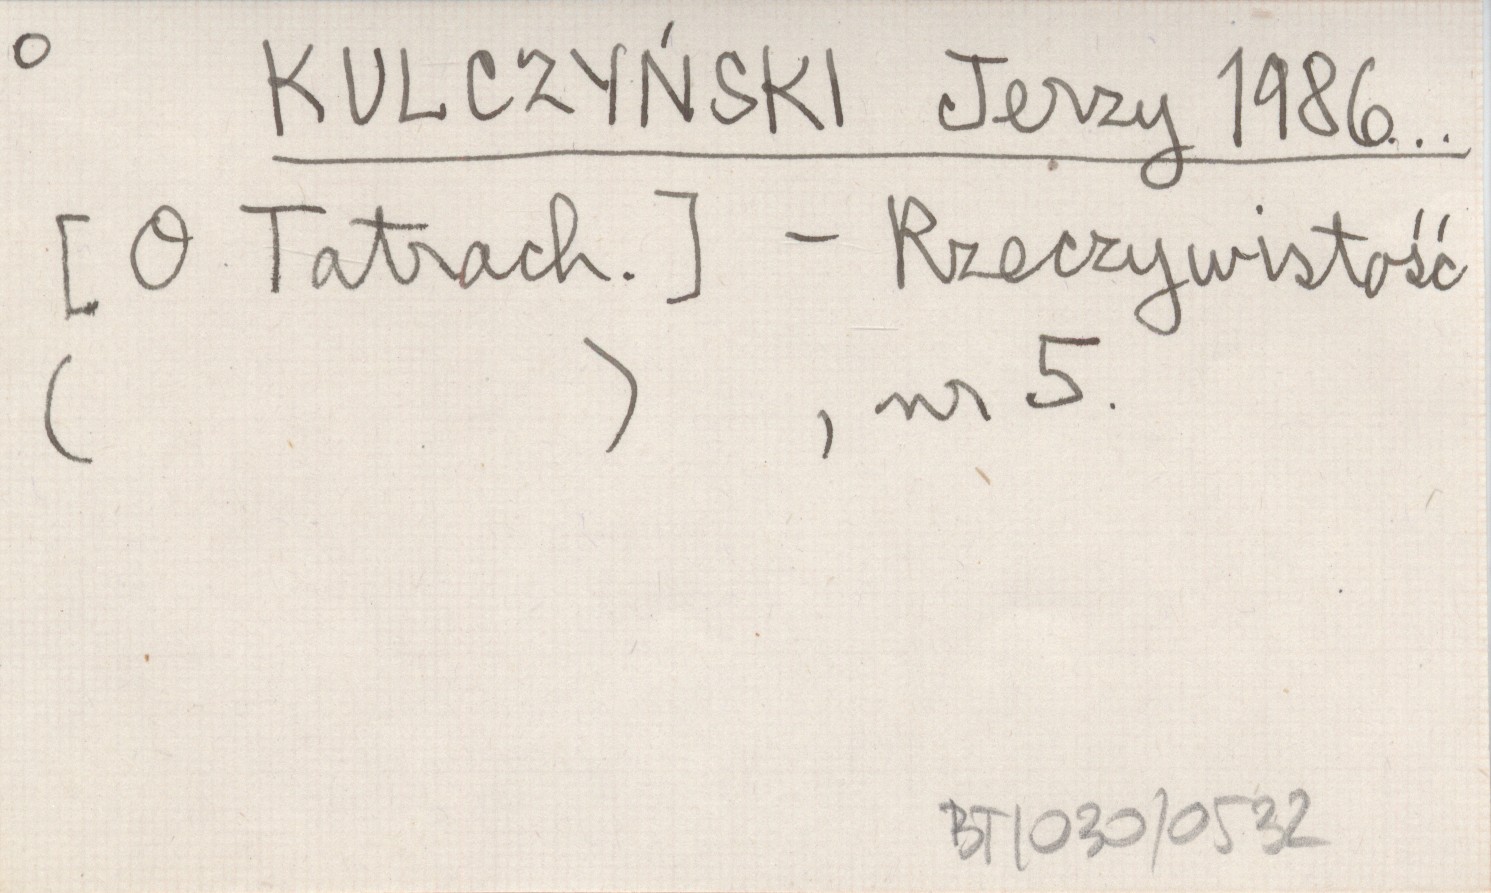 ° KULCZYŃSKI Jerzy 1986...
[O Tatrach.] - Rzeczywistość
( ) , nr 5.
BT/030/0532